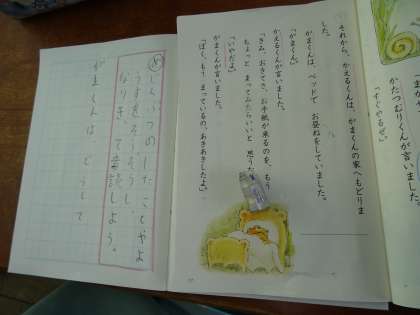 「すぐやるぜ。」
かたつむりくんが言いました。
それから、かえるくんは、がまくんの家へもどりま
した。
がまくんは、ベッドで お昼ねをしていました。
「がまくん。」
かえるくんが言いました。
「きみ、おきてさ、お手紙が来るのを、もう
ちょっと まってみたらいいと 思うな。」
「いやだよ。」
がまくんが言いました。
「ぼく、もう まっているの、あきあきしたよ。」
め
じんぶつの したことやよ
うすをそうぞうし、
なりきって音読しよう。
がまくんは どうして